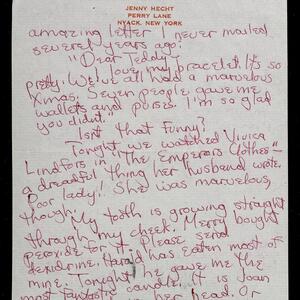 JENNY HECHT
PERRY LANE
NYACK, NEW YORK
amazing letter I never mailed
several years ago:
"Dear Teddy —
I love my bracelet. It's so
pretty. We've all had a marvelous
Xmas. Seven people gave me
wallets and purses. I'm so glad
you didnt."
Isnt that funny?
Tonight, we watched Viveca
Lindfors in the Emperors Clothes —
a dreadful thing her husband wrote.
Poor lady! She was marvelous,
though.
My tooth is growing straight
through my cheek. Merry bought
peroxide for it. Please send
dexidrine. Harold has eaten most of
mine. Tonight he gave me the
most fantastic candle. It is Joan
her head. Or